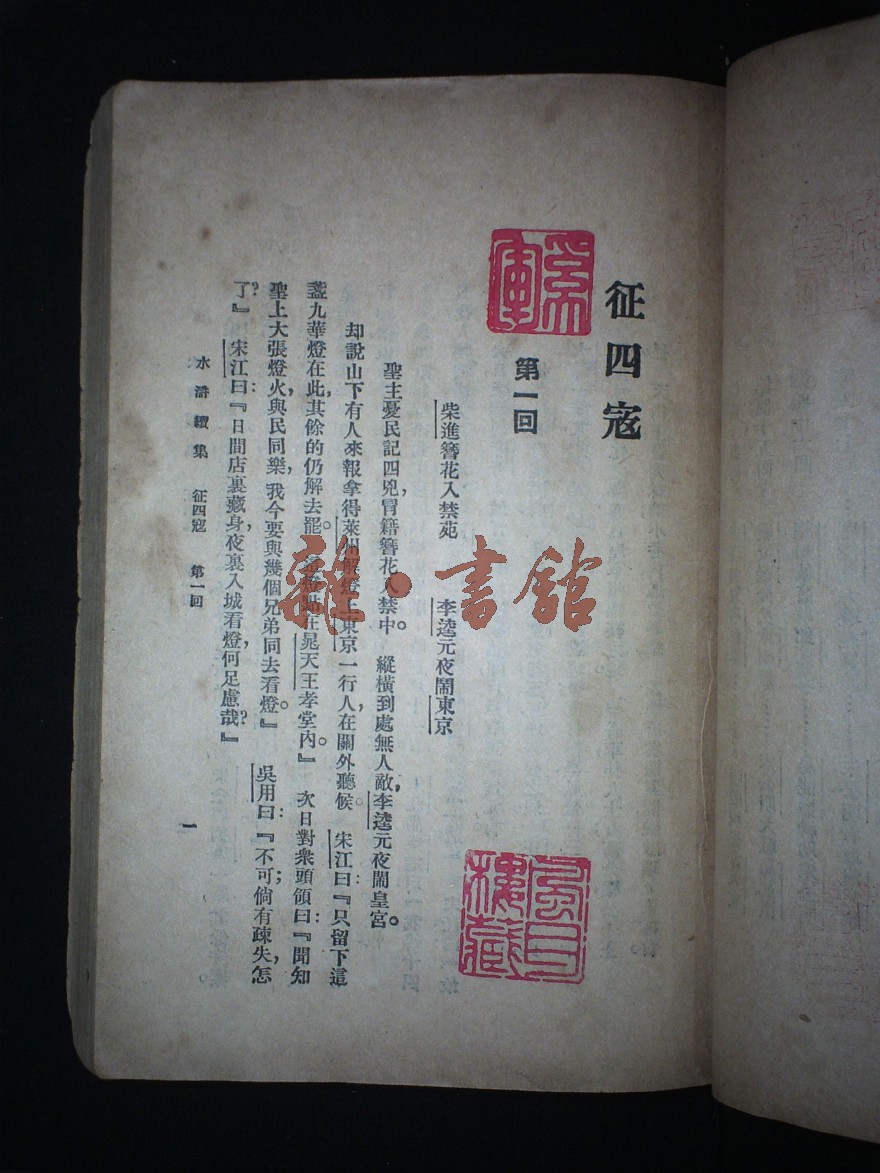 征四寇
第一回
柴進簪花入禁苑　李逵元夜鬧東京
聖主憂民記四兇，冒籍簪花入禁中。　縱橫到處無人敵，李逵元夜鬧皇宮。
却說山下有人來報拿得萊州解燈上東京一行人，在關外聽候。　宋江曰：『只留下這
盞九華燈在此，其餘的仍解去罷。這燈點在晁天王孝堂內。』　次日對衆頭領曰：『聞知
聖上大張燈火，與民同樂，我今要與幾個兄弟同去看燈。』　吳用曰：『不可；倘有疎失，怎
了？』　宋江曰：『日間店裏藏身，夜裏入城看燈，何足慮哉？』
水滸續集　征四寇　第一回
一
樓藏
雜·書館